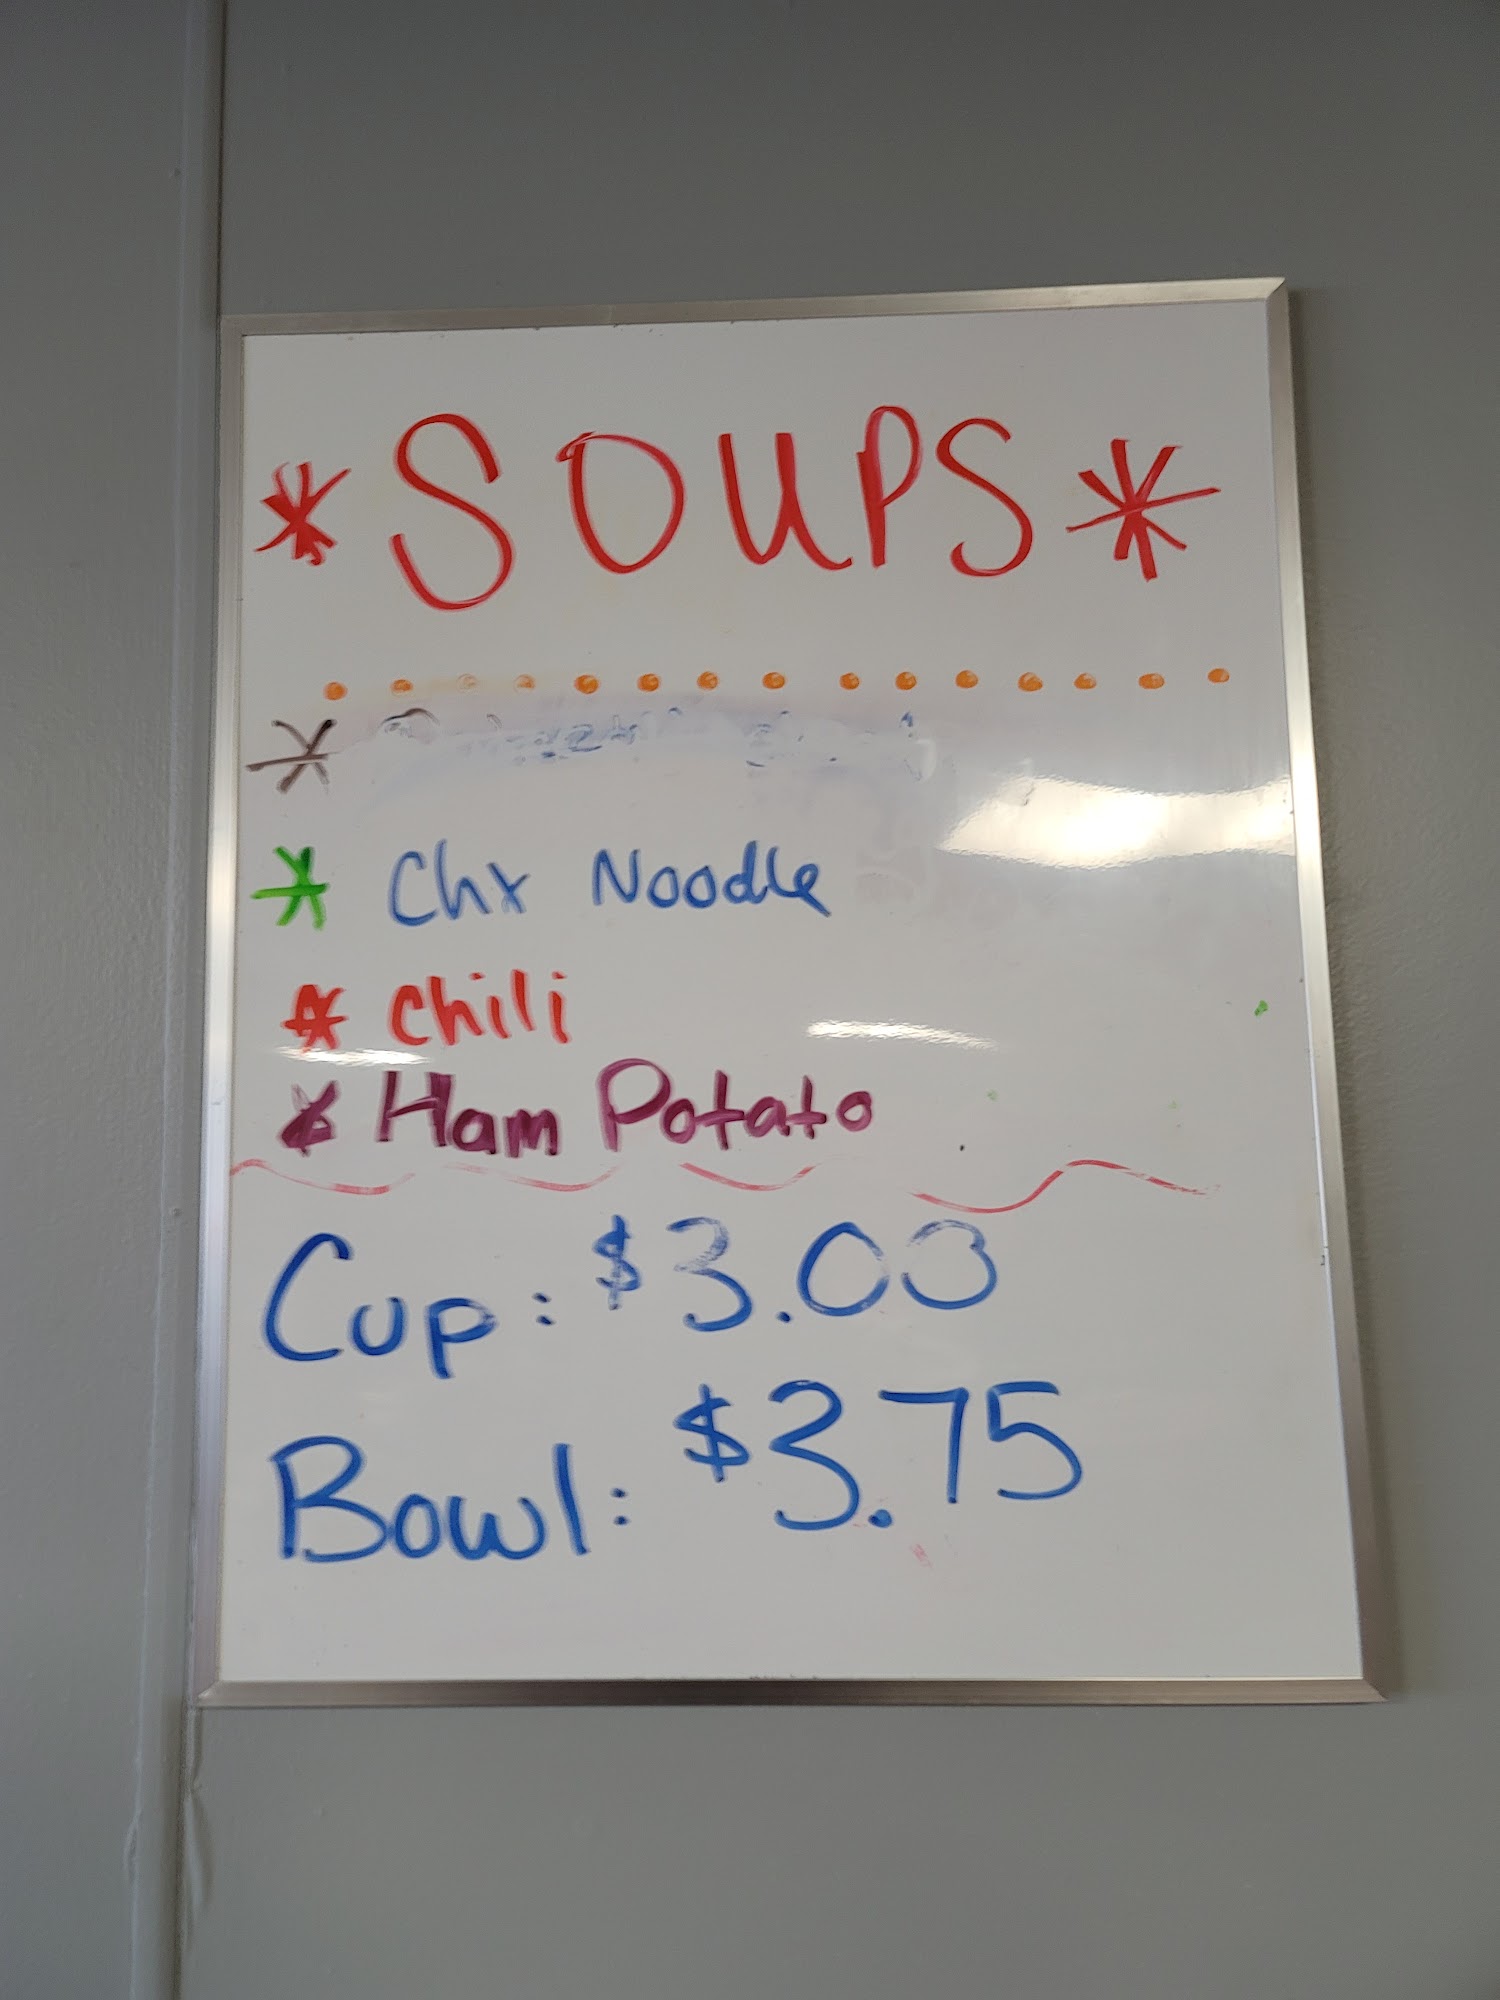 * SOUPS *
*
* Chx Noodle
* Chili
* Ham Potato
Cup: $3.00
Bowl: $3.75